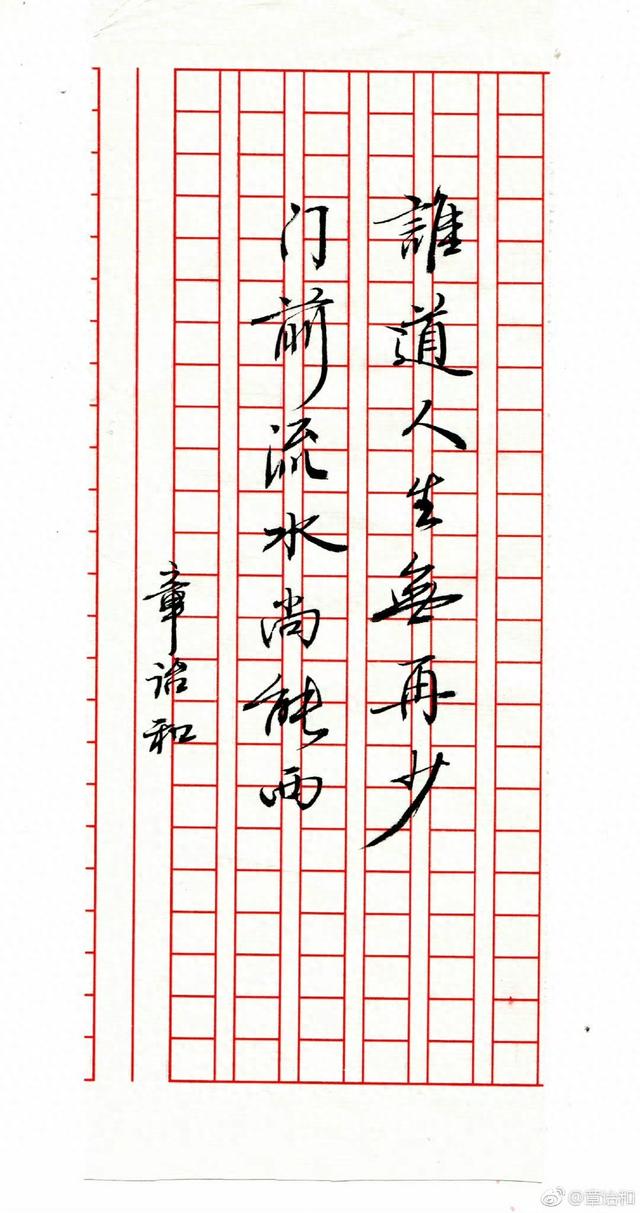 誰道人生無再少
门前流水尚能西
章诒和
@章诒和